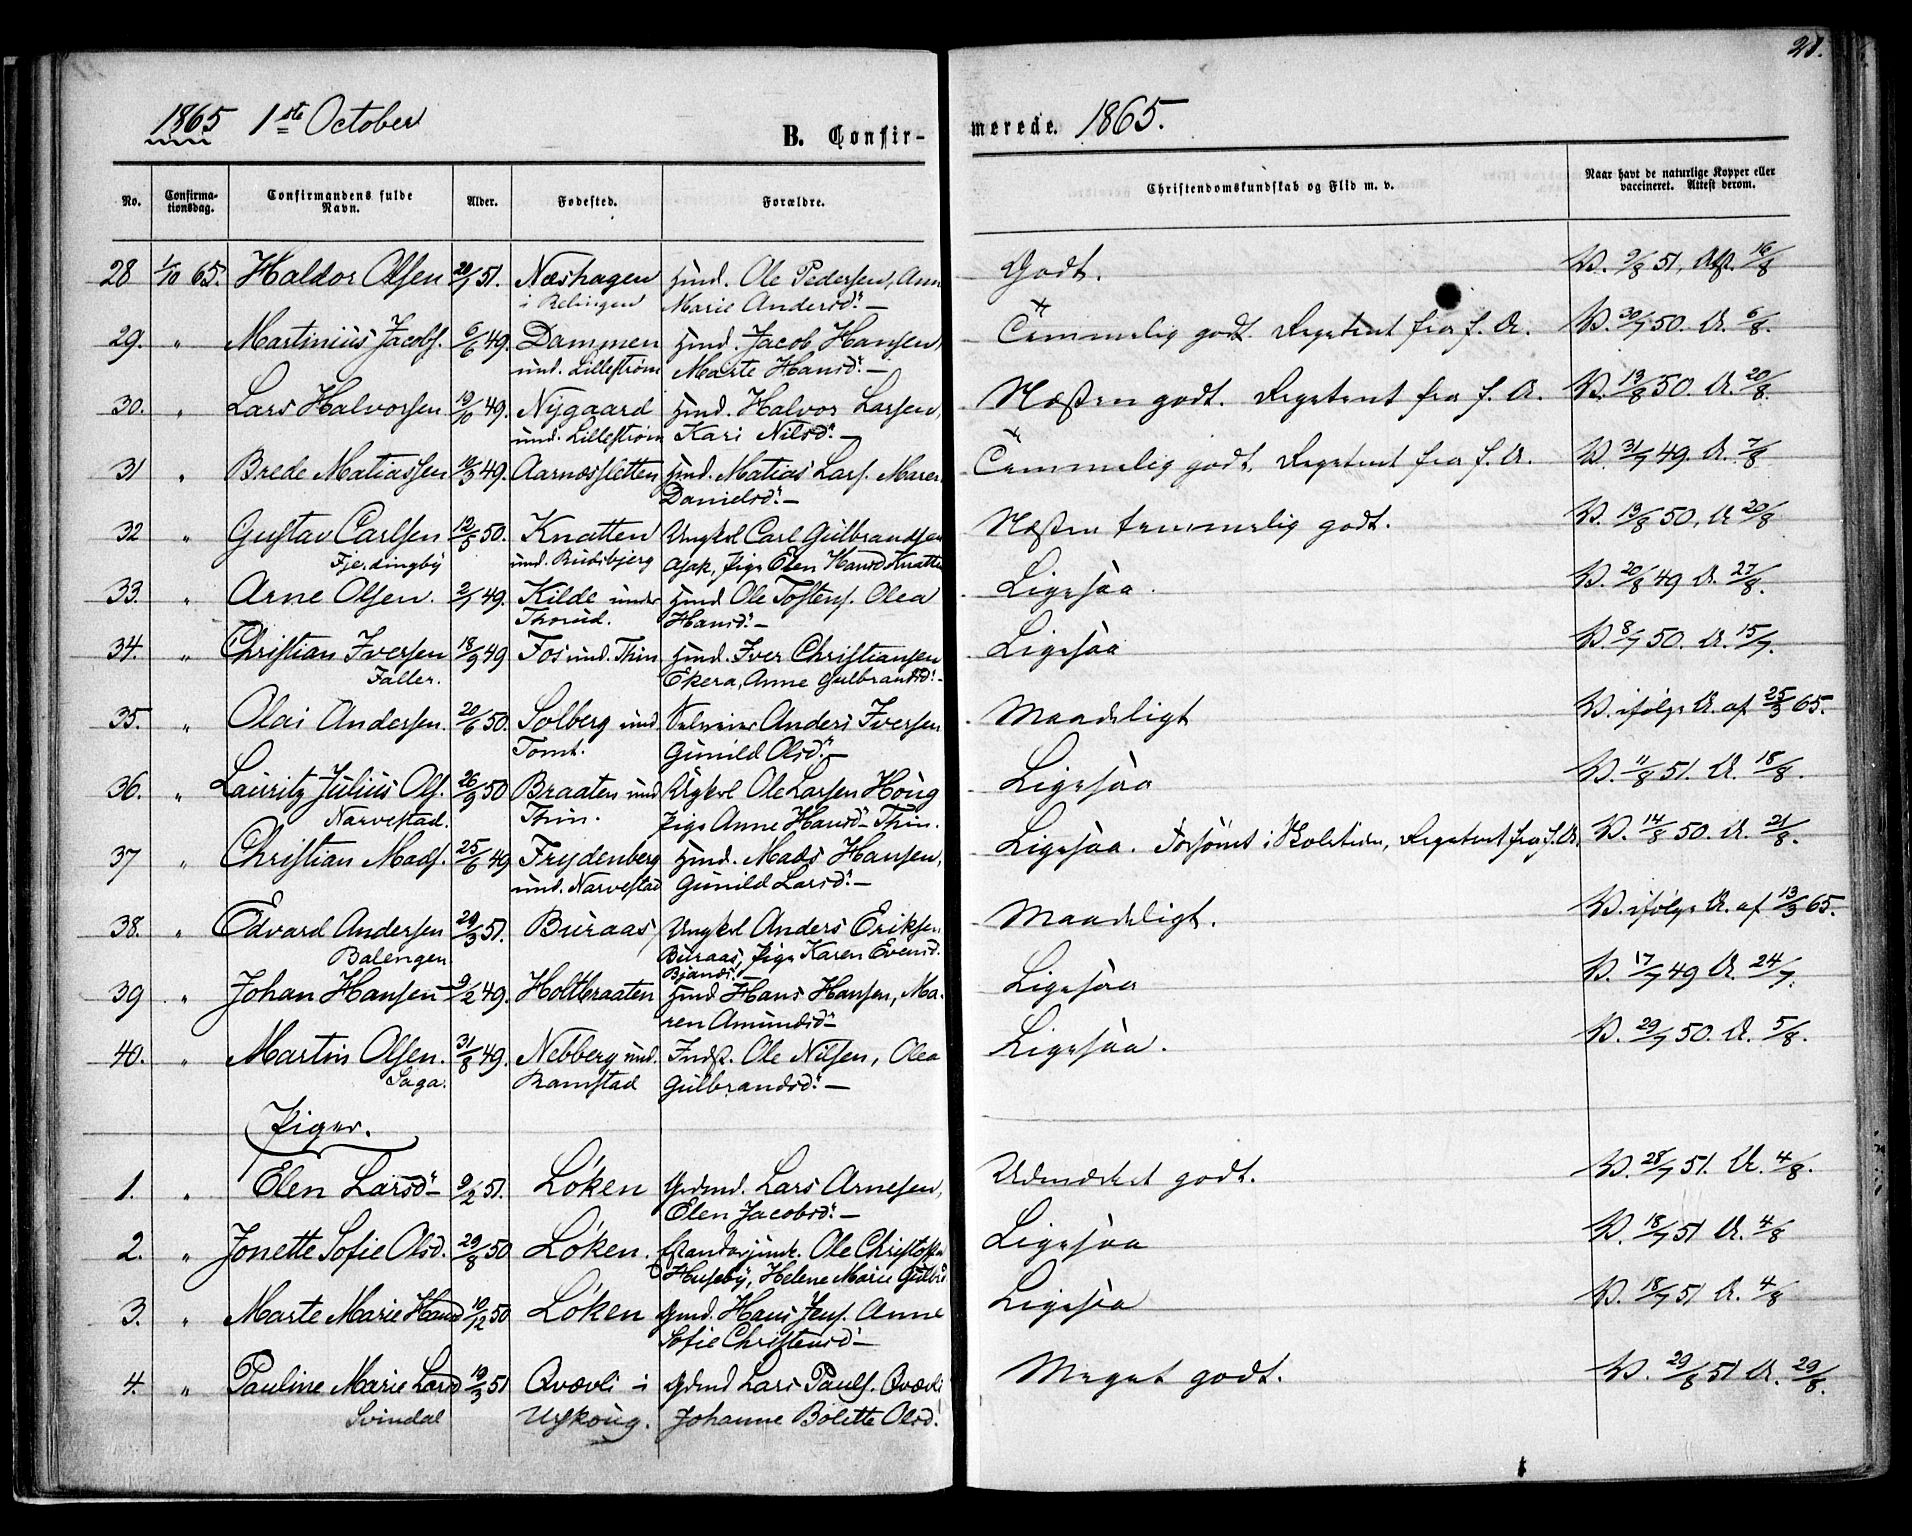 28.
1865 1st October
B. Confir-
merede. 1865.
No.
Confirma-
tionsdag.
Confirmandens fulde
Navn.
Alder.
Fødested.
Forældre.
Christendomskundskab og Flid m. v.
Naar havt de naturlige Kopper eller
vaccineret. Attest derom.
28 1/10 65. Haldor Olsen 20/7 51. Næshagen Hmd. Ole Pedersen, Ann Godt. V. 9/8 51, Att. 16/8
i Relingen Marie Andersd. —
29. " Martinius Jacobs. 6/6 49. Dammen Hmd. Jacob Hansen, Temmelig godt. Repetent fra f. A. V. 30/7 50. A. 6/8.
und. Lillestrøm Marte Hansd. —
30. " Lars Halvorsen 49. Nygaard Hmd. Halvor Larsen, Næsten godt. Repetent fra f. A. V. 13/8 50. A. 20/8.
und. Lillestrøm Kari Nilsd. —
31 " Brede Matiassen 49. Aarnæssletten Hmd. Matias Lars. Maren Temmelig godt. Repetent fra f. A. V. 31/7 49. A. 7/8
Danielsd. —
32 " Gustav Carlsen 50. Knatten Ungkl Carl Gulbrandsen Næsten temmelig godt. V. 13/8 50, A 20/8
Fjerdingby und. Rudsbjerg Asak, Pige Elen Hansd Knatten
33. " Arne Olsen. 49. Kilde under Hmd Ole Tostens. Olea Ligesaa. V. 20/8 49 A. 27/8.
Thorud. Hansd. —
34. " Christian Iversen 18/9 49 Fos und. Thin Hmd. Iver Christiansen Ligesaa V. 8/7 50. A. 15/7.
Faller. Ekera, Anne Gulbrandsd. —
35. " Olai Andersen. 20/6 50. Solberg und. Anders Iversen Maadeligt V. ifølge A. af 25/3 65.
Tomt. Gunild Olsd. —
36. " Lauritz Julius Ols. 26/9 50 Braaten und Ugkl Ole Larsen Houg Ligesaa V. 11/8 51. A. 18/8.
Narvestad. Thin. Pige Anne Hansd — Thin.
37 " Christian Mads. 25/6 49 Frydenberg Hmd. Mads Hansen, Ligesaa. Forsømt i Skoletiden, Repetent fra f. A. V. 14/8 50. A. 21/8.
und. Narvestad Gunild Larsd. —
38. " Edvard Andersen 29/3 51. Buraas Ungkl Anders Eriksen Maadeligt. V. ifølge A. af 13/3 65.
Balengen. Buraas, Pige Karen Evensd.
39 " Johan Hansen 9/2 49. Holtbraaten Hmd Hans Hansen, Ma- Ligesaa V. 17/7 49 A. 24/7.
ren Amundsd —
40. " Martin Olsen. 31/8 49. Nebberg und. Indst. Ole Nilsen, Olea Ligesaa. V. 29/7 50. A. 5/8.
Saga. Ramstad Gulbrandsd. —
Piger.
1. " Elen Larsd — 9/2 51. Løken Grdmd. Lars Arnesen, Udmærket godt. V. 28/7 51. A. 4/8.
Elen Jacobsd. —
2. " Jonette Sofie Olsd. 29/8 50 Løken. Ole Christoffer Ligesaa V. 18/7 51 A. 4/8
Huseby, Helene Marie Gulbr
3. " Marte Marie Hansd 10/12 50 Løken Gmd. Hans Jens. Anne Ligesaa V. 18/7 51 A. 4/8
Sofie Christensd —
4. " Pauline Marie Larsd 19/3 51 Qvævli i Grdmd Lars Pauls. Qvævli Meget godt. V. 29/8 51 A. 29/8.
Svindal Urskoug. Johanne Bolette Olsd.